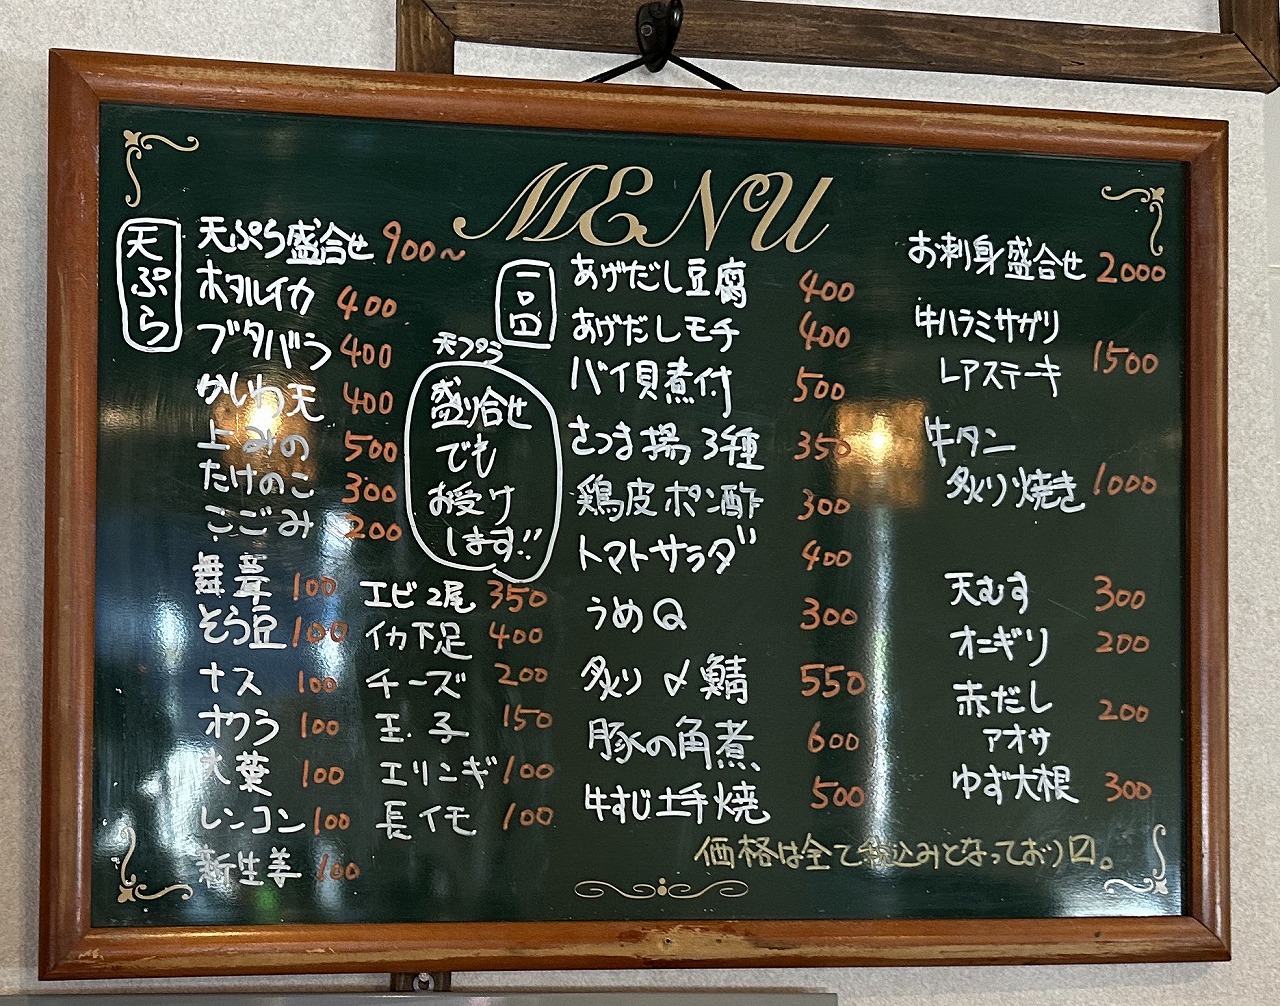 MENU
天ぷら
天ぷら盛合せ 900〜
ホタルイカ 400
ブタバラ 400
かしわ天 400
上みの 500
たけのこ 300
こごみ 200
舞茸 100
そら豆 100
ナス 100
オクラ 100
大葉 100
レンコン 100
新生姜 100
天プラ
盛り合せ
でも
お受け
します!!
エビ2尾 350
イカ下足 400
チーズ 200
玉子 150
エリンギ 100
長イモ 100
一品
あげだし豆腐 400
あげだしモチ 400
バイ貝煮付 500
さつま揚3種 350
鶏皮ポン酢 300
トマトサラダ 400
うめQ 300
炙り〆鯖 550
豚の角煮 600
牛すじ土手焼 500
お刺身盛合せ 2000
牛ハラミサガリ
レアステーキ 1500
牛タン
炙り焼き 1000
天むす 300
オニギリ 200
赤だし 200
アオサ
ゆず大根 300
価格は全て税込みとなっており〼。